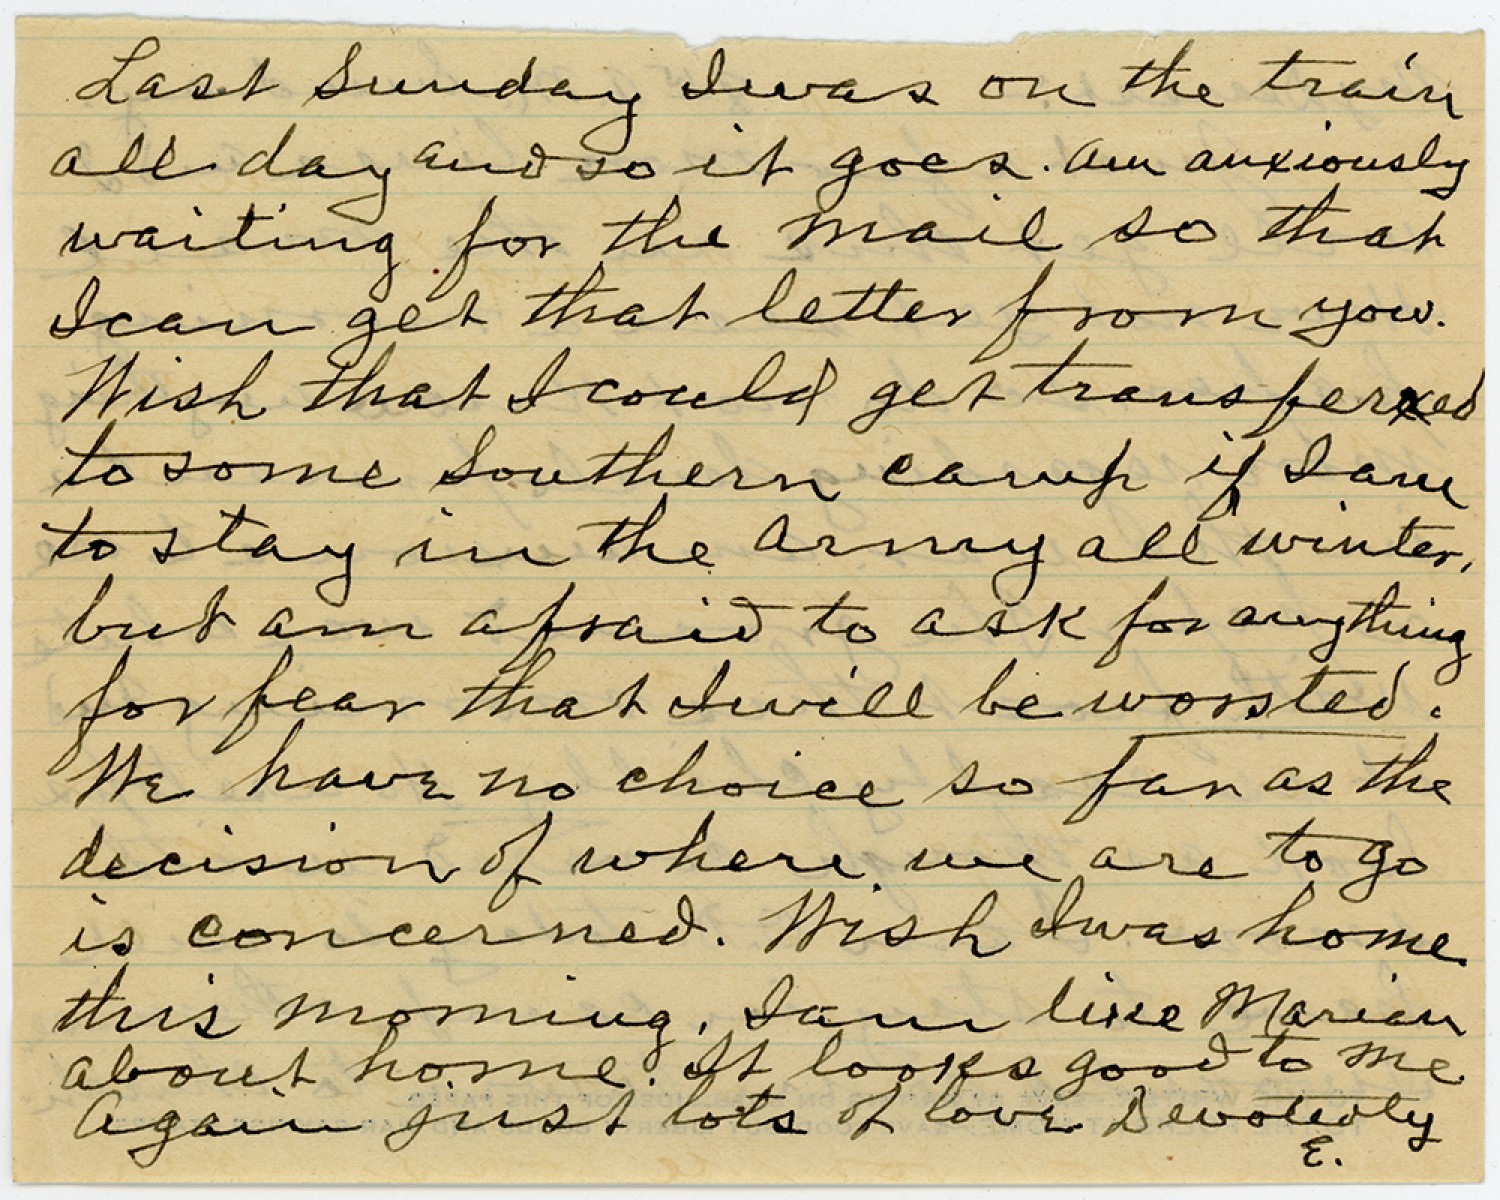 Last Sunday I was on the train
all day and so it goes. Am anxiously
waiting for the mail so that
I can get that letter from you.
Wish that I could get transferred
to some Southern camp if I am
to stay in the army all winter,
but am afraid to ask for anything
for fear that I will be worsted.
We have no choice so far as the
decision of where we are to go
is concerned. Wish I was home
this morning. I am like Marian
about home. It looks good to me
Again just lots of love Devotedly
E.